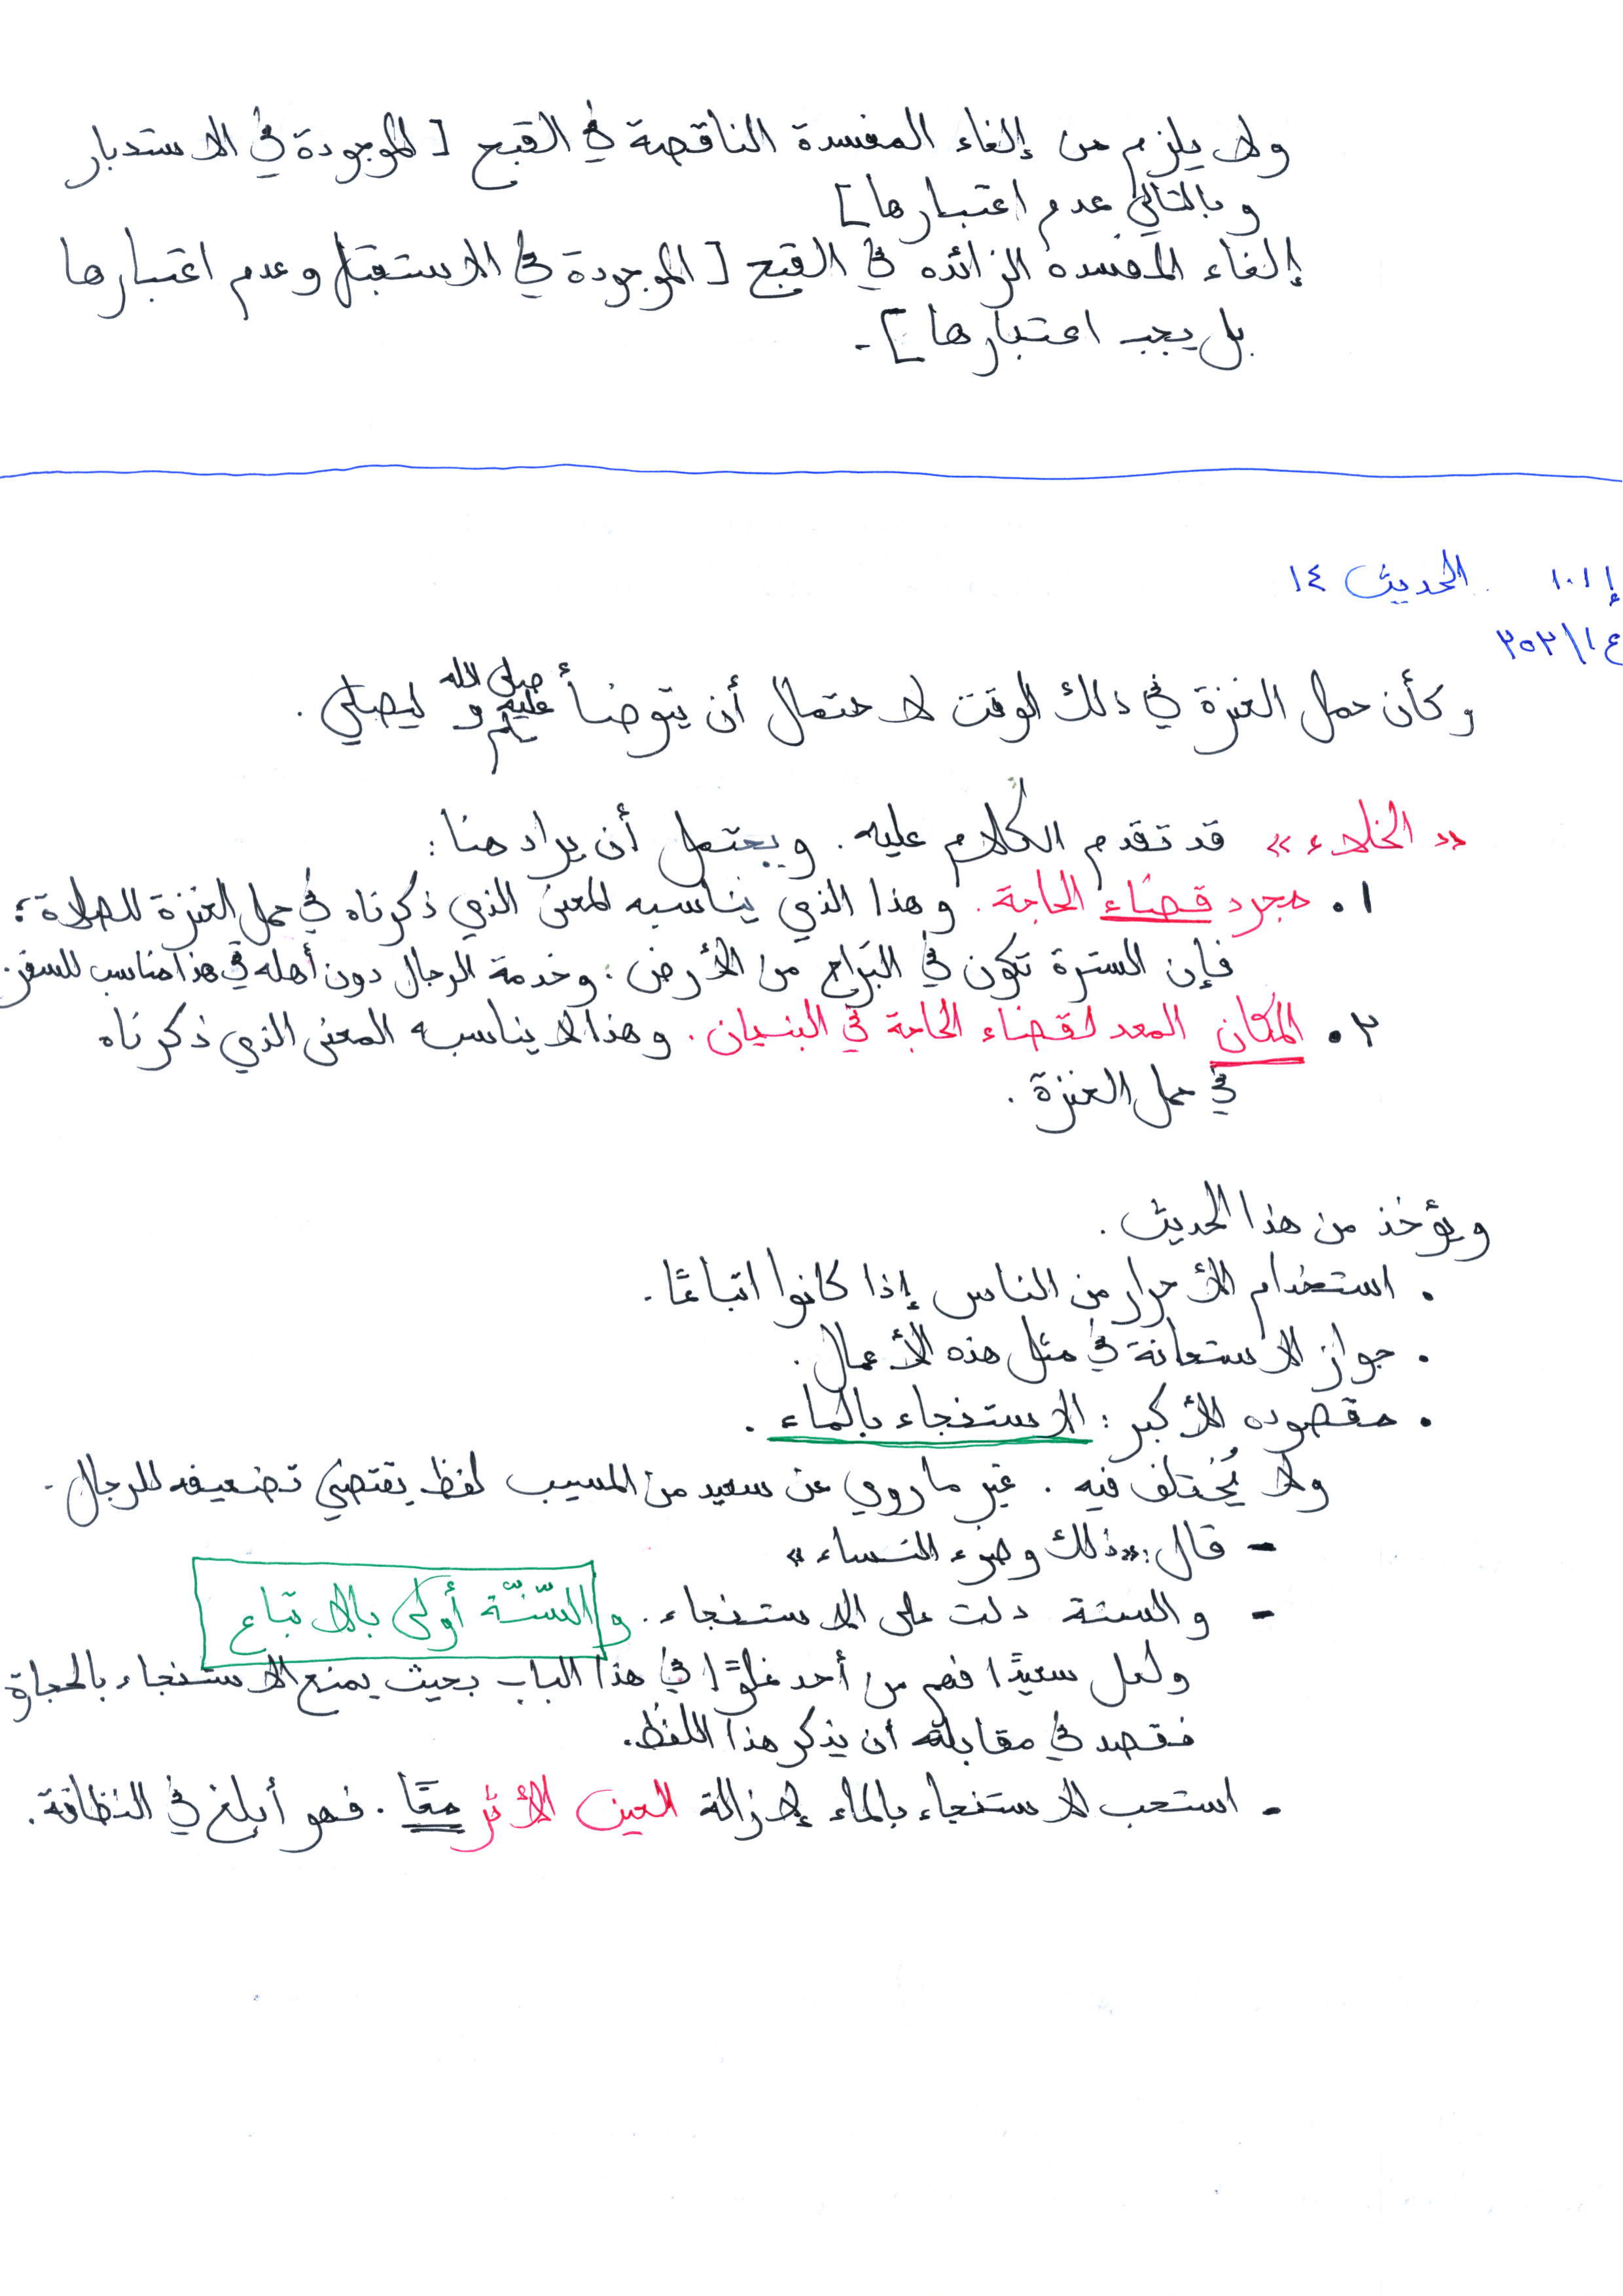 ولا يلزم من إلغاء المفسدة الناقصة في القبح [الموجودة في الاستدبار
وبالتالي عدم اعتبارها]
إلغاء المفسده الزائده في القبح [الموجودة في الاستقبال وعدم اعتبارها
بل يجب اعتبارها].
إ١٠١ الحديث ١٤
ع١/٢٥٢
وكأن حمل العنزة في ذلك الوقت لاحتمال أن يتوضأ صلى الله عليه وسلم ليصلي.
«الخلاء» قد تقدم الكلام عليه. ويحتمل أن يراد هنا:
١. مجرد قضاء الحاجة. وهذا الذي يناسبه المعنى الذي ذكرناه في حمل العنزة للصلاة؛
فإن السترة تكون في البَراح من الأرض؛ وخدمة الرجال دون أهله في هذا مناسب للسفر.
٢. المكان المعد لقضاء الحاجة في البنيان. وهذا لا يناسبه المعنى الذي ذكرناه
في حمل العنزة.
ويؤخذ من هذا الحديث.
. استخدام الأحرار من الناس إذا كانوا اتباعًا.
. جواز الاستعانة في مثل هذه الأعمال.
. مقصوده الأكبر: الاستنجاء بالماء.
ولا يُختلف فيه. غير ما روي عن سعيد من المسيب لفظ يقتضي تضعيفه للرجال.
- قال: «ذلك وضوء النساء»
- والسنة دلت على الاستنجاء. والسّنّة أولى بالاتباع
ولعل سعيدًا فهم من أحد غلوًّا في هذا الباب بحيث يمنع الاستنجاء بالحجارة
فقصد في مقابلته أن يذكر هذا اللفظ.
- استحب الاستنجاء بالماء لإزالة العين الأثر معًا. فهو أبلغ في النظافة.